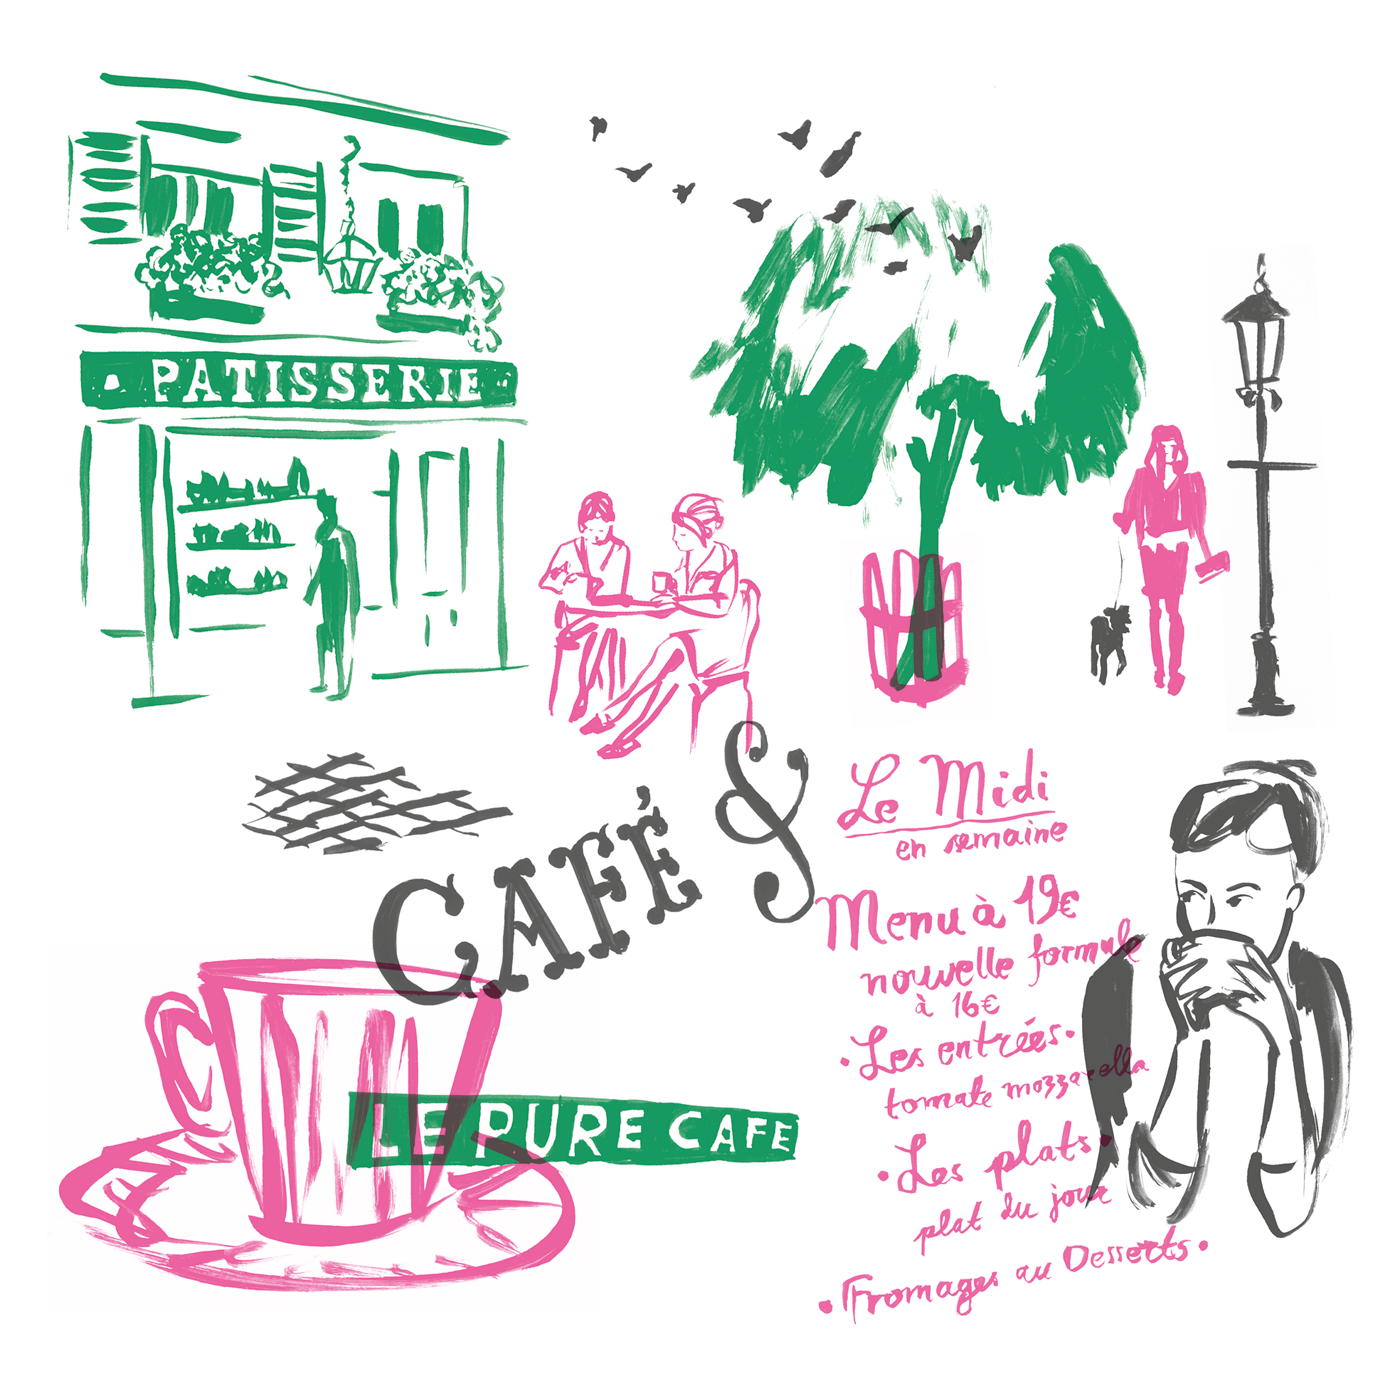 PATISSERIE
CAFÉ &
Le Midi
en semaine
Menu à 19€
nouvelle formule
à 16€
• Les entrées •
tomate mozzarella
• Les plats •
plat du jour
• Fromages au Desserts •
LE PURE CAFE